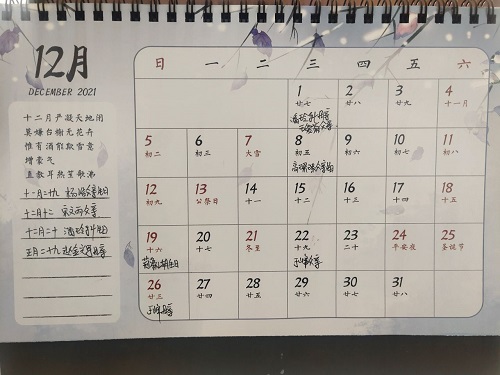 12月
DECEMBER 2021
十二月严凝天地闭
莫嫌台榭无花卉
惟有酒能欺雪意
增豪气
直教耳热笙歌沸
十一月二十九
十二月十二
十二月二十
正月二十九
日 一 二 三 四 五 六
1 2 3 4
廿七 廿八 廿九 十一月
5 6 7 8 9 10 11
初二 初三 大雪 初五 初六 初七 初八
12 13 14 15 16 17 18
初九 公祭日 十一 十二 十三 十四 十五
19 20 21 22 23 24 25
十六 十七 冬至 十九 二十 平安夜 圣诞节
26 27 28 29 30 31
廿三 廿四 廿五 廿六 廿七 廿八